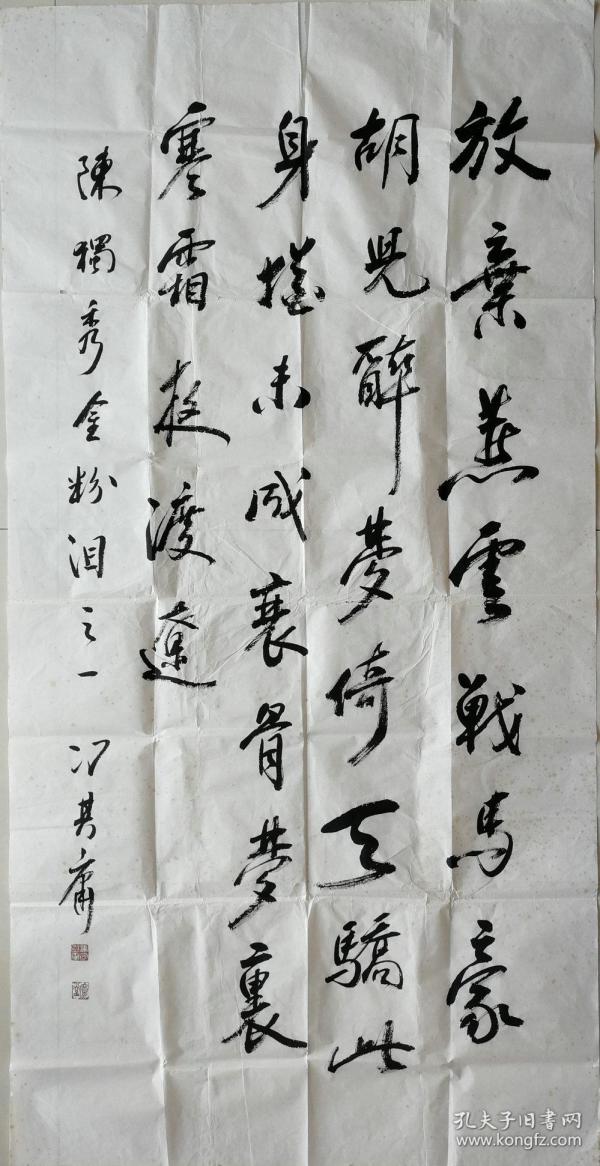 放棄燕雲戰馬豪
胡兒醉夢倚天驕此
身猶未成衰骨夢裏
寒霜夜渡遼
陳獨秀金粉泪之一 馮其庸
孔夫子旧书网
www.kongfz.com